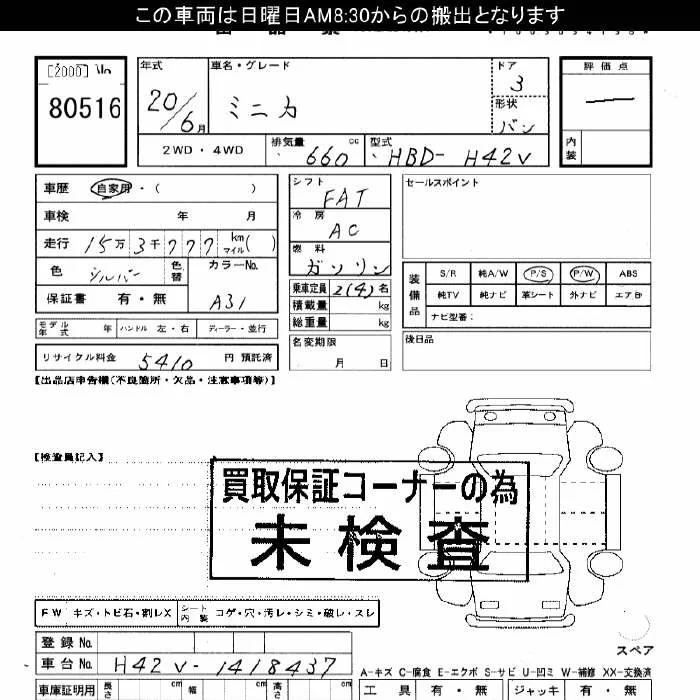 この車両は日曜日AM8:30からの搬出となります
[2000] No
80516
年式 車名・グレード ドア 評価点
20/6月 ミニカ 3
形状
バン
2WD・4WD 排気量 660cc 型式 HBD- H42V 内装
車歴 自家用・( )
車検 年 月
走行 15万3千777 km マイル( )
色 シルバー 色替 カラーNo. A31
保証書 有・無
シフト FAT
冷房 AC
燃料 ガソリン
乗車定員 2(4)名
積載量 kg
総重量 kg
名変期限
月 日
セールスポイント
装備品 S/R 純A/W P/S P/W ABS
純TV 純ナビ 革シート 外ナビ エアB
ナビ型番:
後日品
モデル年式 年 ハンドル 左・右 ディーラー・並行
リサイクル料金 5410 円 預託済
【出品店申告欄(不良箇所・欠品・注意事項等)】
【検査員記入】
買取保証コーナーの為
未検査
FW キズ・トビ石・割レX シート内装 コゲ・穴・汚レ・シミ・破レ・スレ
登録No.
車台No. H42V-1418437
スペア
A-キズ C-腐食 E-エクボ S-サビ U-凹ミ W-補修 XX-交換済
車庫証明用 長さ cm 幅 cm 高さ cm
工具 有・無 ジャッキ 有・無